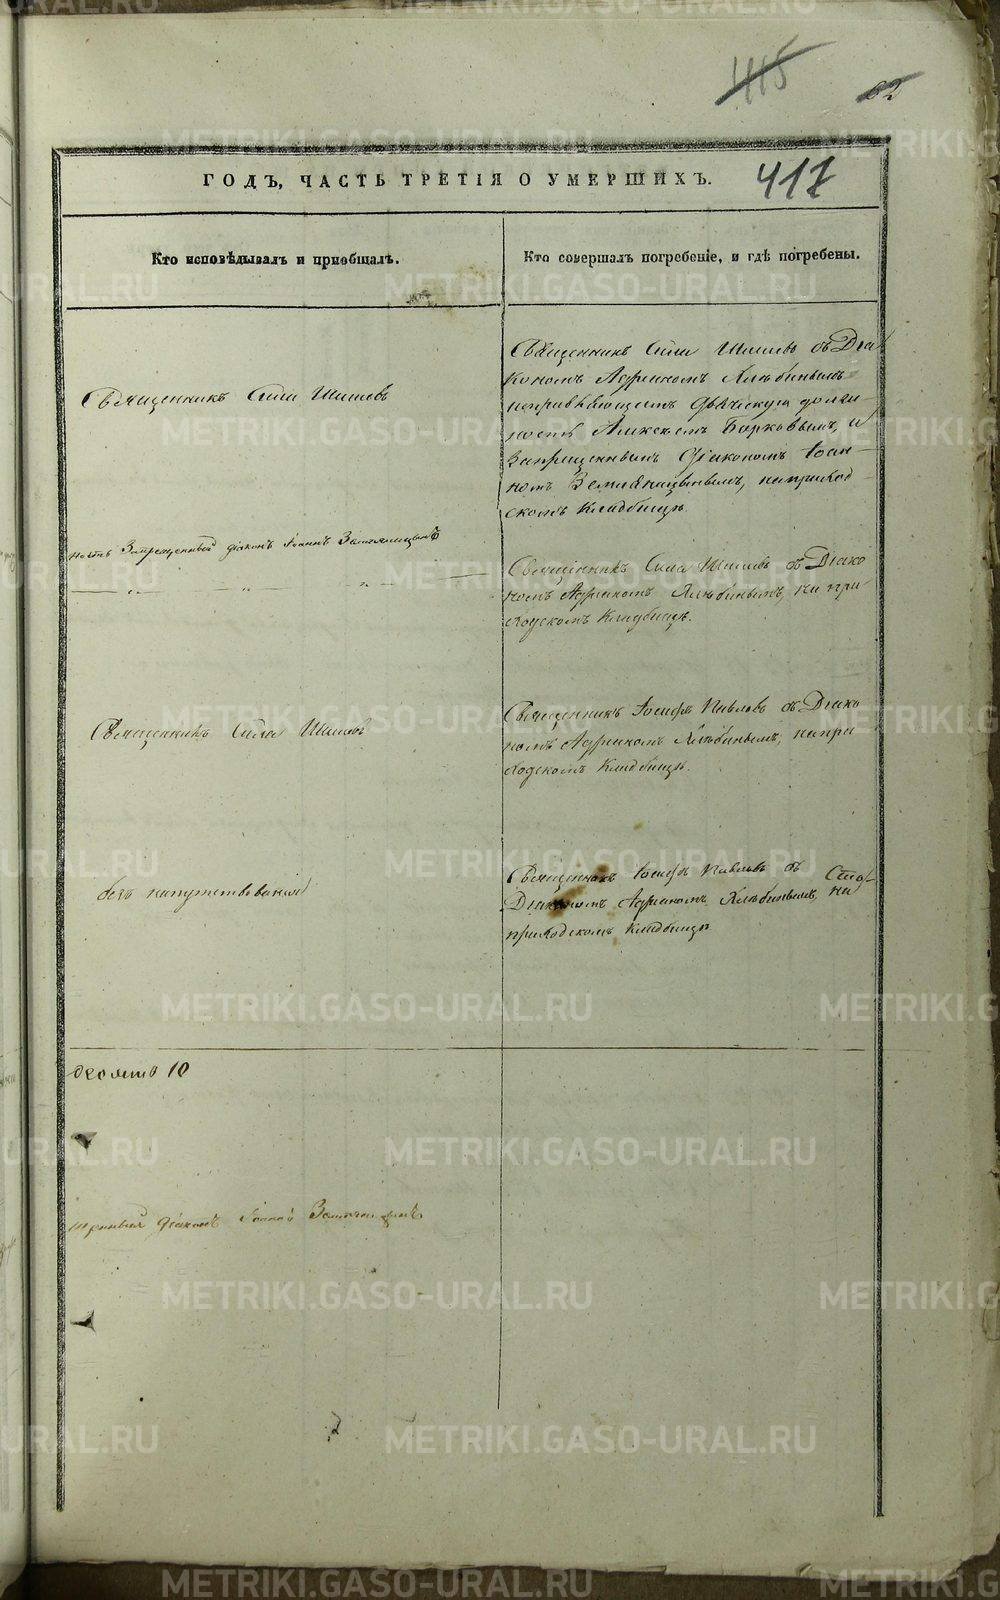 415
82
417
ГОДЪ, ЧАСТЬ ТРЕТІЯ О УМЕРШИХЪ.
Кто исповѣдывалъ и пріобщалъ.
Кто совершалъ погребеніе, и гдѣ погребены.
Священникъ Сила Шишевъ
Священникъ Сила Шишевъ съ Діа
кономъ Адріаномъ Хлѣбинымъ
должн
ность Алексѣемъ Борковымъ, и
Запрещеннымъ діакономъ Іоан
номъ Земляницынымъ, на приход
скомъ Кладбищѣ.
ность Запрещенный діаконъ Іоаннъ Земляницынъ
Священникъ Сила Шишевъ съ Діако
номъ Адріаномъ Хлѣбинымъ, на при
ходскомъ Кладбищѣ.
Священникъ Сила Шишевъ
Священникъ Іосифъ Павловъ съ Діако
номъ Адріаномъ Хлѣбинымъ, на при
ходскомъ Кладбищѣ.
безъ напутствованія
Священникъ Іосифъ Павловъ съ
Діакономъ Адріаномъ Хлѣбинымъ, на
приходскомъ Кладбищѣ.
десято 10
діаконъ Іоаннъ Земляницынъ
METRIKI.GASO-URAL.RU